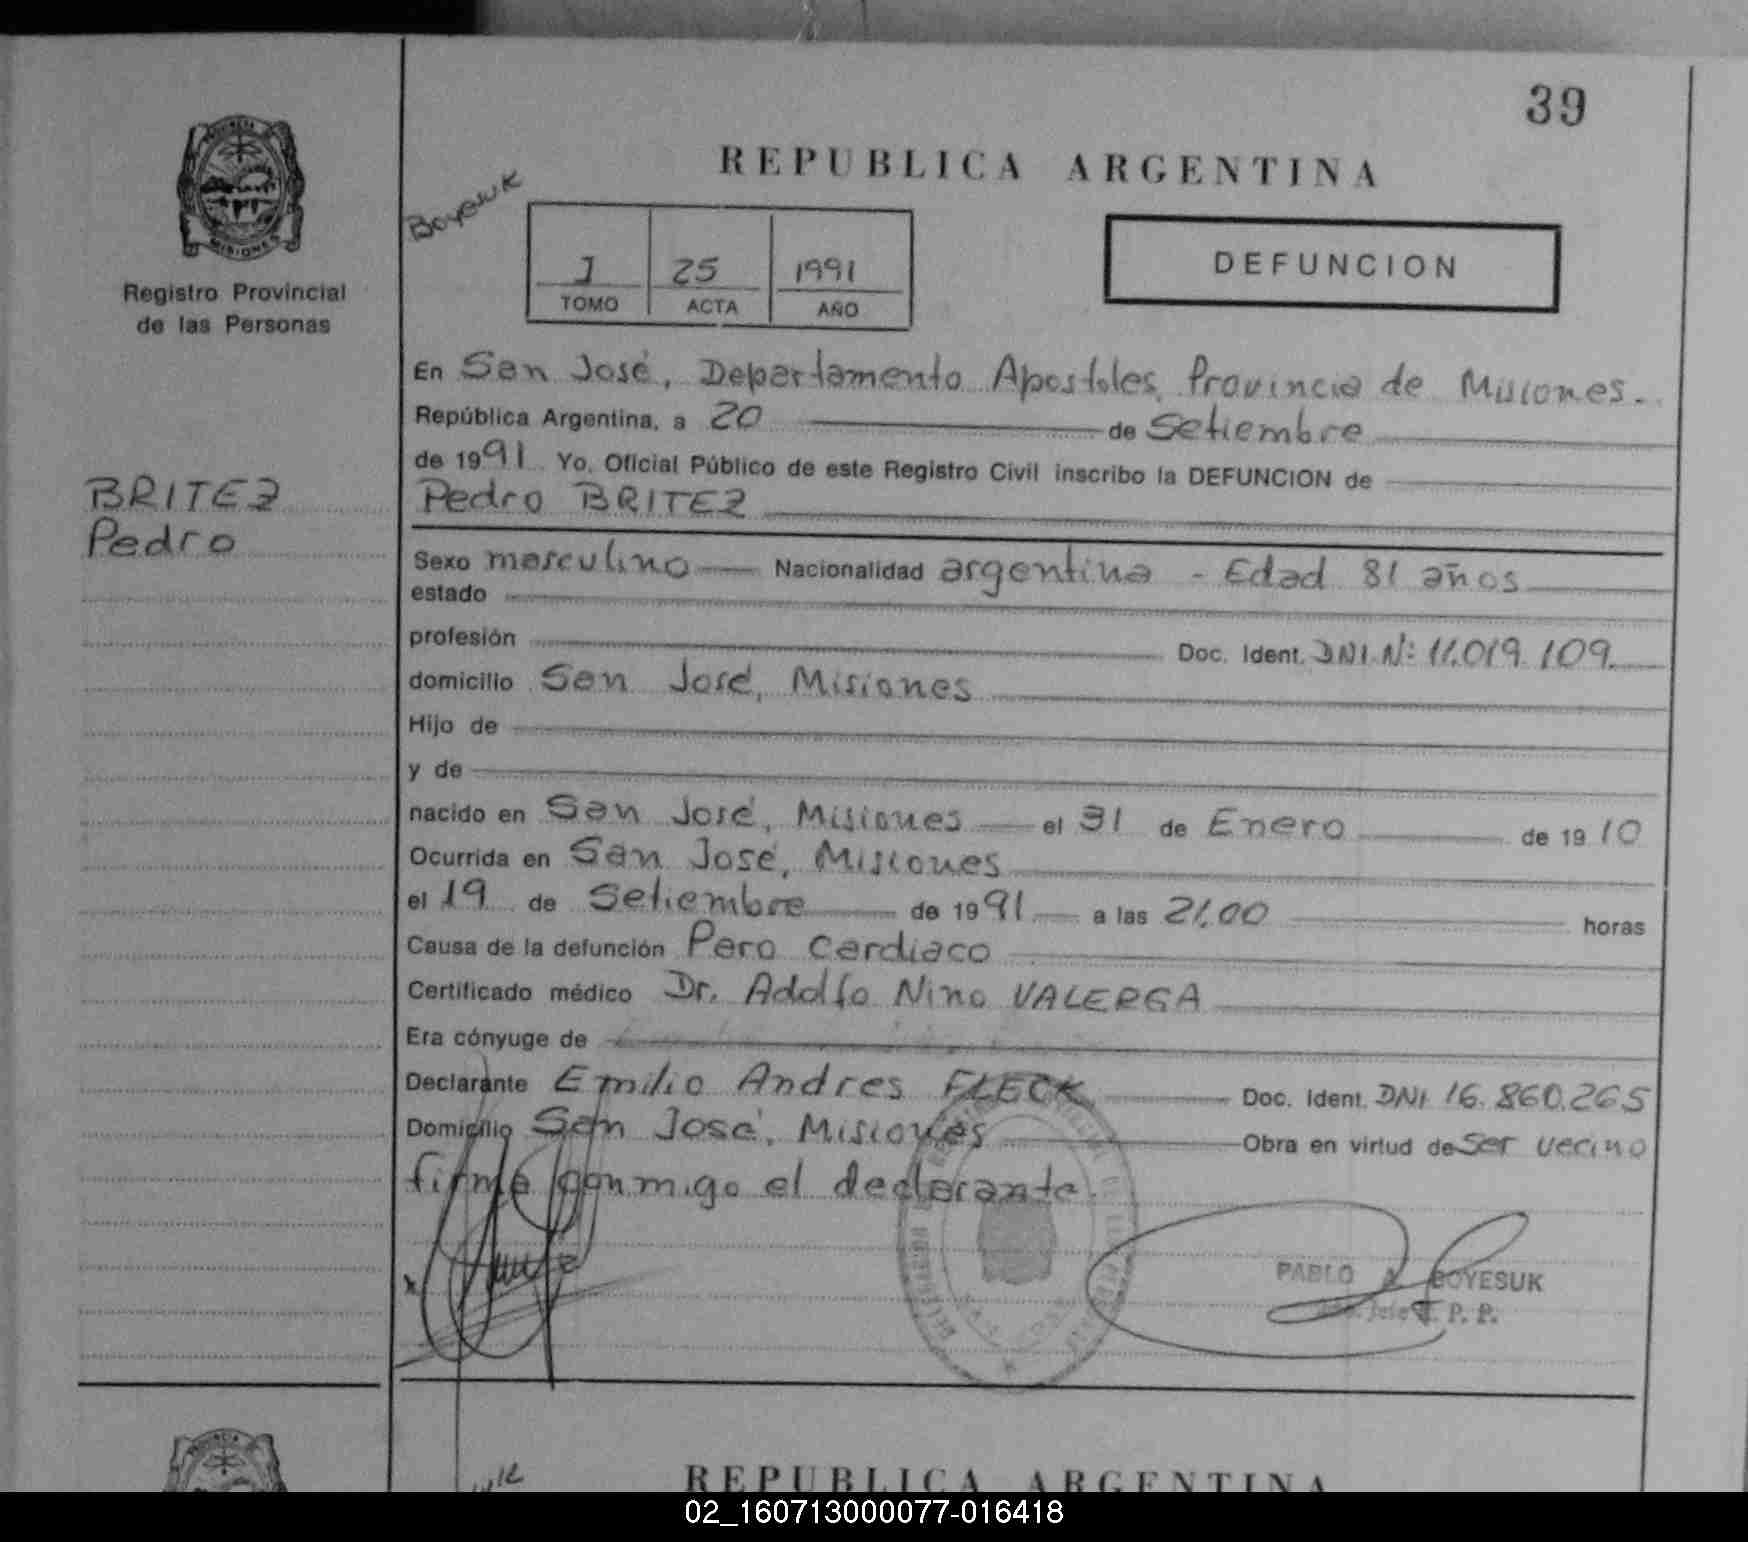 39
REPUBLICA ARGENTINA
Boyesuk
1 25 1991
TOMO ACTA AÑO
DEFUNCION
PROVINCIA DE
MISIONES
Registro Provincial
de las Personas
En San José, Departamento Apostoles, Provincia de Misiones.
República Argentina, a 20 de Setiembre
de 1991 Yo, Oficial Público de este Registro Civil inscribo la DEFUNCION de
BRITEZ
Pedro
Pedro BRITEZ
Sexo masculino Nacionalidad argentina - Edad 81 años
estado
profesión Doc. Ident. DNI Nº: 11.019.109.
domicilio San José, Misiones
Hijo de
y de
nacido en San José, Misiones el 31 de Enero de 1910
Ocurrida en San José, Misiones
el 19 de Setiembre de 1991 a las 21,00 horas
Causa de la defunción Paro Cardiaco
Certificado médico Dr. Adolfo Nino VALERGA
Era cónyuge de
Declarante Emilio Andres FLECK Doc. Ident. DNI 16.860.265
Domicilio San José, Misiones Obra en virtud de Ser vecino
firma conmigo el declarante.
PABLO A. BOYESUK
R. P. P.
REPUBLICA ARGENTINA
02_160713000077-016418